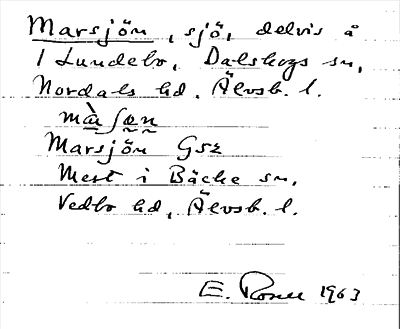 Marsjön, sjö, delvis å
i Lundebo, Dalskogs sn,
Nordals hd. Älvsb. l.
màʃøn
Marsjön Gsz
Mest i Bäcke sn,
Vedbo hd, Älvsb. l.
E. Rosell 1963